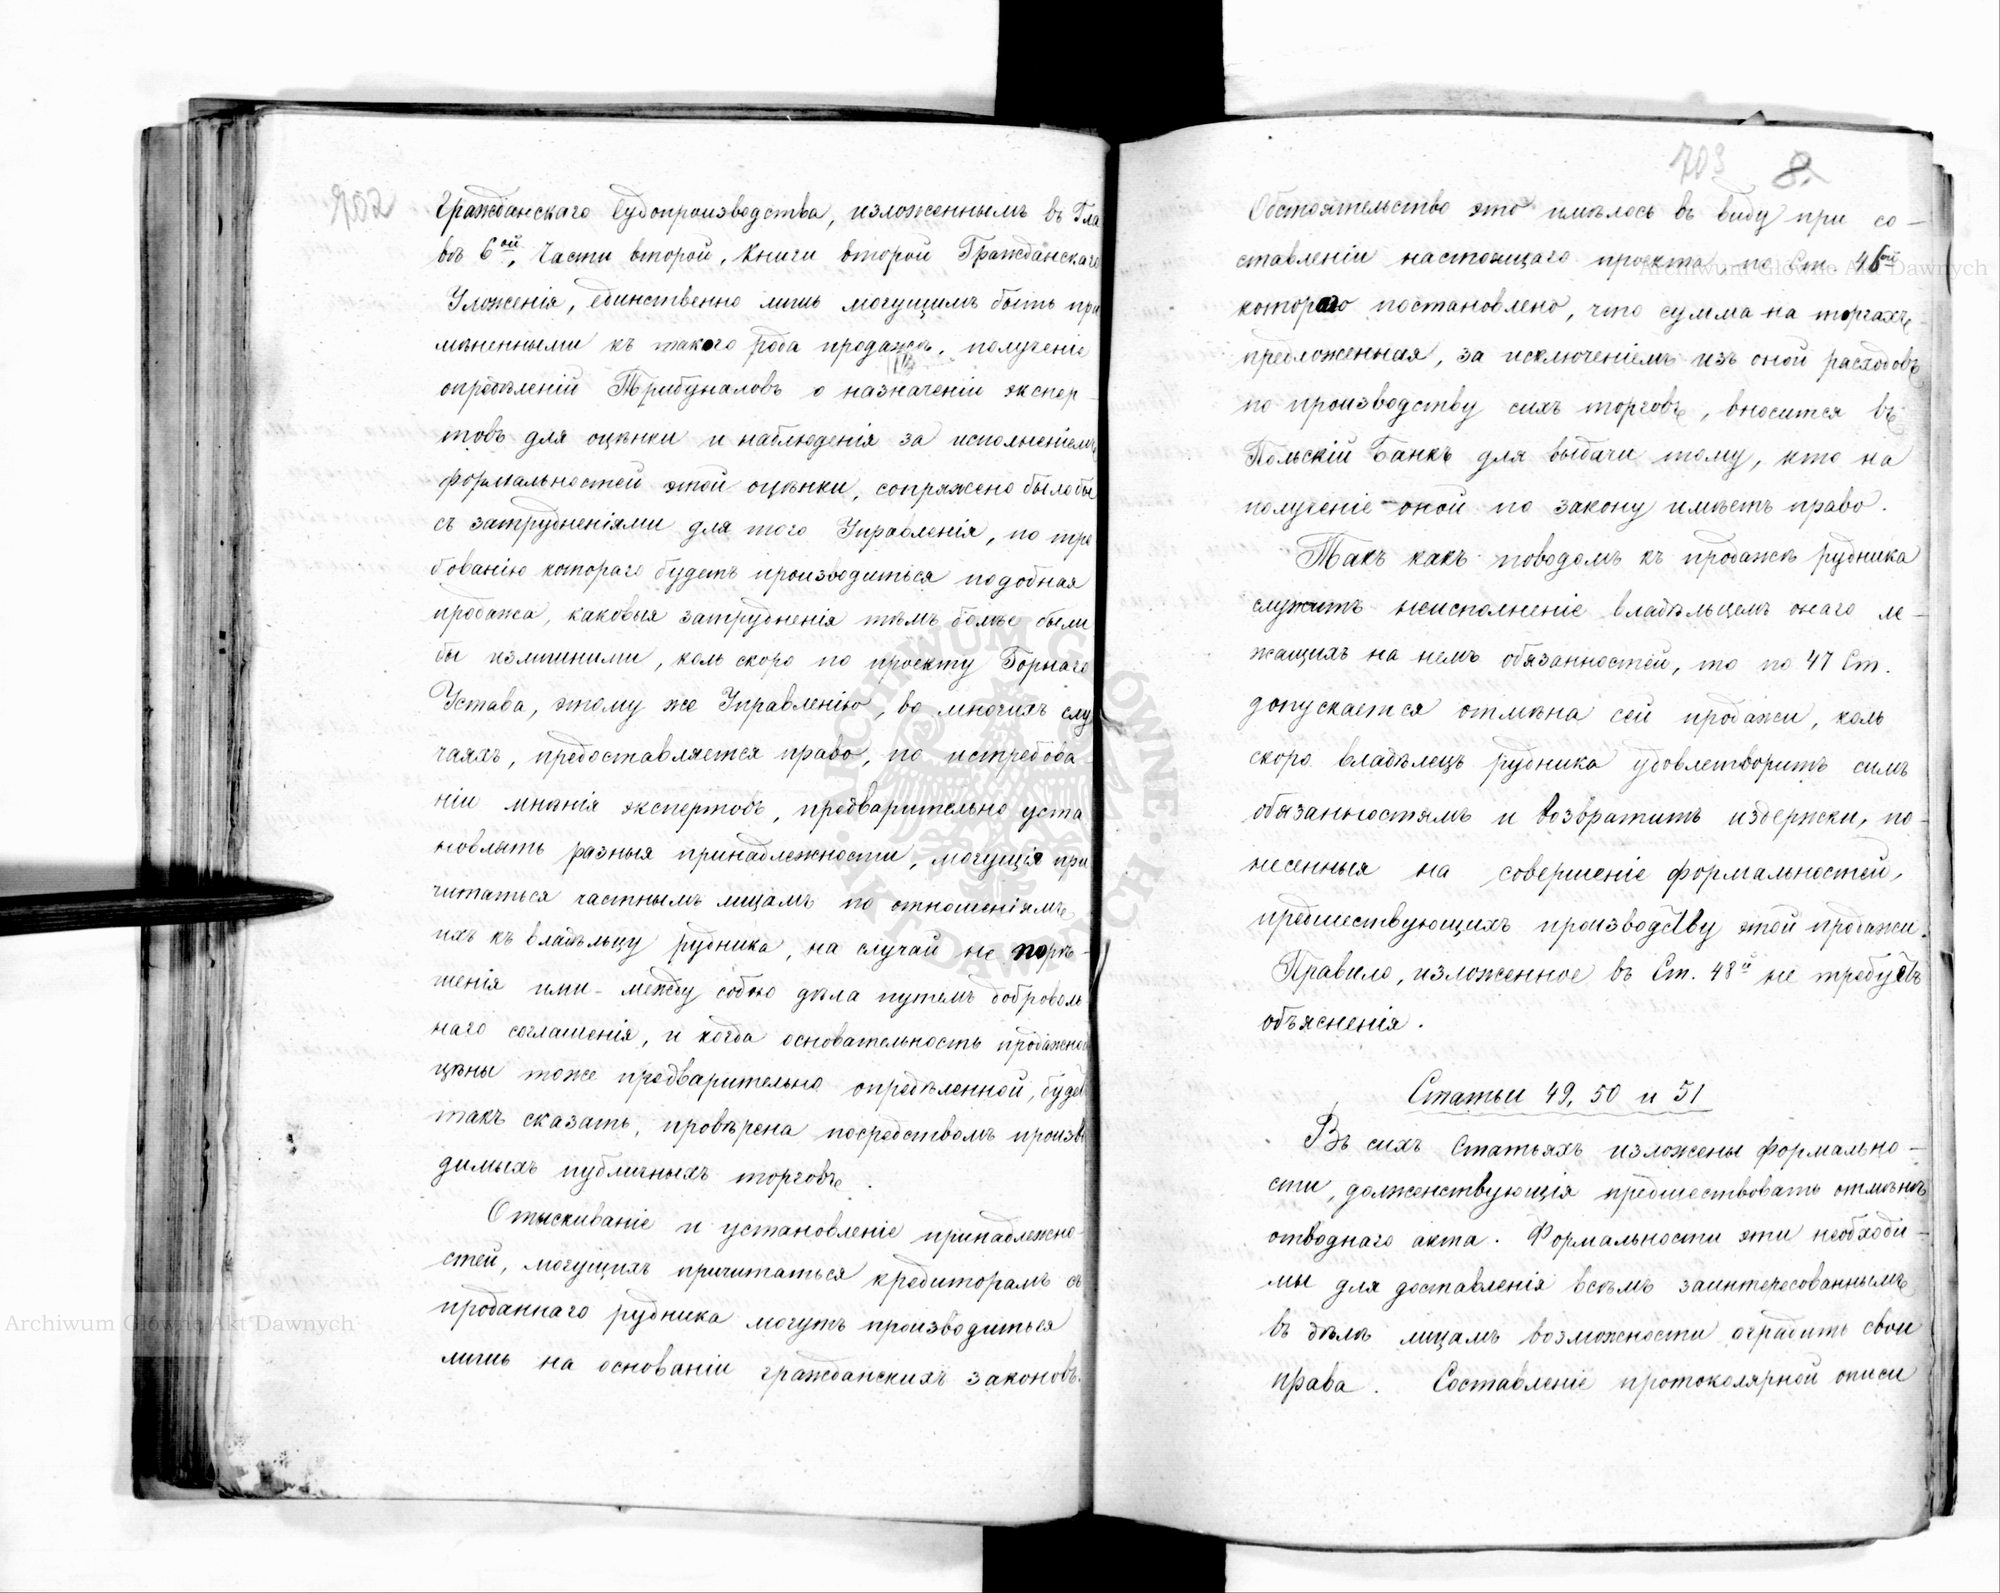 702
Гражданскаго Судопроизводства, изложеннымъ въ Гла
въ 6ой, Части второй, Книги второй Гражданскаго
Уложенія, единственно лишь могущимъ быть при
мѣненными къ такого рода продажѣ, получение
опредѣленій Трибуналовъ о назначеніи экспер-
товъ для оцѣнки и наблюденія за исполненіемъ
формальностей этой оцѣнки, сопряжено было бы
съ затрудненіями для того Управленія, по тре
бованію котораго будетъ производиться подобная
продажа, каковыя затрудненія тѣмъ болѣе были
бы излишними, коль скоро по проекту Горнаго
Устава, этому же Управленію, во многихъ слу
чаяхъ, предоставляется право, по истребова-
ніи мнѣнія экспертовъ, предварительно уста
новлять разныя принадлежности, могущія при
читаться частнымъ лицамъ по отношеніямъ
ихъ къ владѣльцу рудника, на случай не порѣ-
шенія ими между собою дѣла путемъ доброволь
наго соглашенія, и когда основательность продажной
цѣны тоже предварительно опредѣленной, будетъ
такъ сказать, провѣрена посредствомъ произво
димыхъ публичныхъ торговъ.
Отыскиваніе и установленіе принадлежно-
стей, могущихъ причитаться кредиторамъ съ
проданнаго рудника могутъ производиться
лишь на основаніи гражданскихъ законовъ.
703 8.
Обстоятельство это имѣлось въ виду при со-
ставленіи настоящаго проекта, по Ст. 46ой
котораго постановлено, что сумма на торгахъ
предложенная, за исключеніемъ изъ оной расходовъ
по производству сихъ торговъ, вносится въ
Польскій Банкъ для выдачи тому, кто на
полученіе оной по закону имѣетъ право.
Такъ какъ поводомъ къ продажѣ рудника
служитъ неисполненіе владѣльцемъ онаго ле-
жащихъ на немъ обязанностей, то по 47 Ст.
допускается отмѣна сей продажи, коль
скоро владѣлецъ рудника удовлетворитъ симъ
обязанностямъ и возвратитъ издержки, по-
несенныя на совершеніе формальностей,
предшествующихъ производству этой продажи.
Правило, изложенное въ Ст. 48й не требуетъ
объясненія.
Статьи 49, 50 и 51
Въ сихъ Статьяхъ изложены формально-
сти, долженствующія предшествовать отмѣнѣ
отводнаго акта. Формальности эти необходи-
мы для доставленія всѣмъ заинтересованнымъ
въ дѣлѣ лицамъ возможности оградить свои
права. Составленіе протоколярной описи
Archiwum Główne Akt Dawnych
Archiwum Główne Akt Dawnych
ARCHIWUM GŁÓWNE AKT DAWNYCH